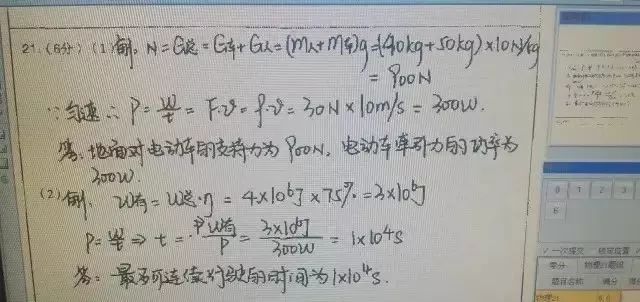 21.(6分)(1)解. N=G总=G车+G人=(m人+m车)g=(40kg+50kg)×10N/kg
=900N
∵匀速∴P=W/t=F·v=f·v=30N×10m/s=300W.
答:地面对电动车的支持力为900N,电动车牵引力的功率为
300W.
(2)解. W有=W总·η=4×10⁶J×75%=3×10⁶J
P=W/t⇒t=W有/P=3×10⁶J/300W=1×10⁴s
答:最多可连续行驶的时间为1×10⁴s.
0 1 2 3
6
一次提交
零分
题目名称 满分